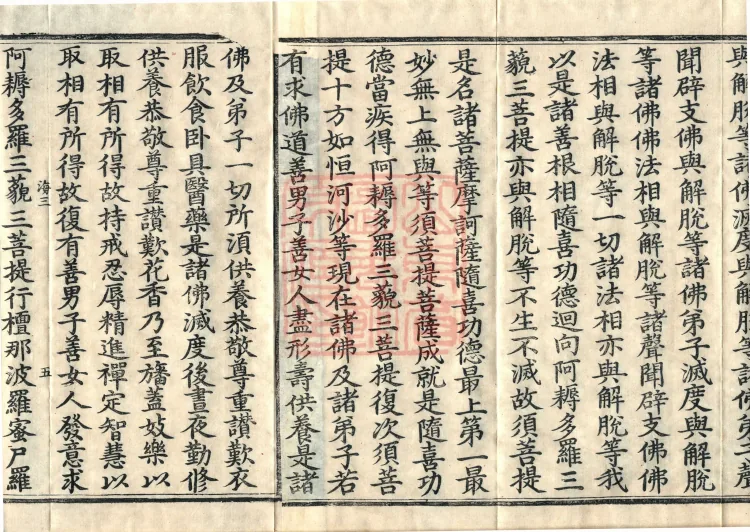 與解脫等諸佛滅度與解脫等諸佛弟子聲
聞辟支佛與解脫等諸佛弟子滅度與解脫
等諸佛佛法相與解脫等諸聲聞辟支佛佛
法相與解脫等一切諸法相亦與解脫等我
以是諸善根相隨喜功德迴向阿耨多羅三
藐三菩提亦與解脫等不生不滅故須菩提
是名諸菩薩摩訶薩隨喜功德最上第一最
妙無上無與等須菩提菩薩成就是隨喜功
德當疾得阿耨多羅三藐三菩提復次須菩
提十方如恒河沙等現在諸佛及諸弟子若
有求佛道善男子善女人盡形壽供養是諸
佛及弟子一切所須供養恭敬尊重讚歎衣
服飲食卧具醫藥是諸佛滅度後晝夜勤修
供養恭敬尊重讚歎花香乃至旛蓋妓樂以
取相有所得故持戒忍辱精進禪定智慧以
取相有所得故復有善男子善女人發意求
海三 五
阿耨多羅三藐三菩提行檀那波羅蜜尸羅